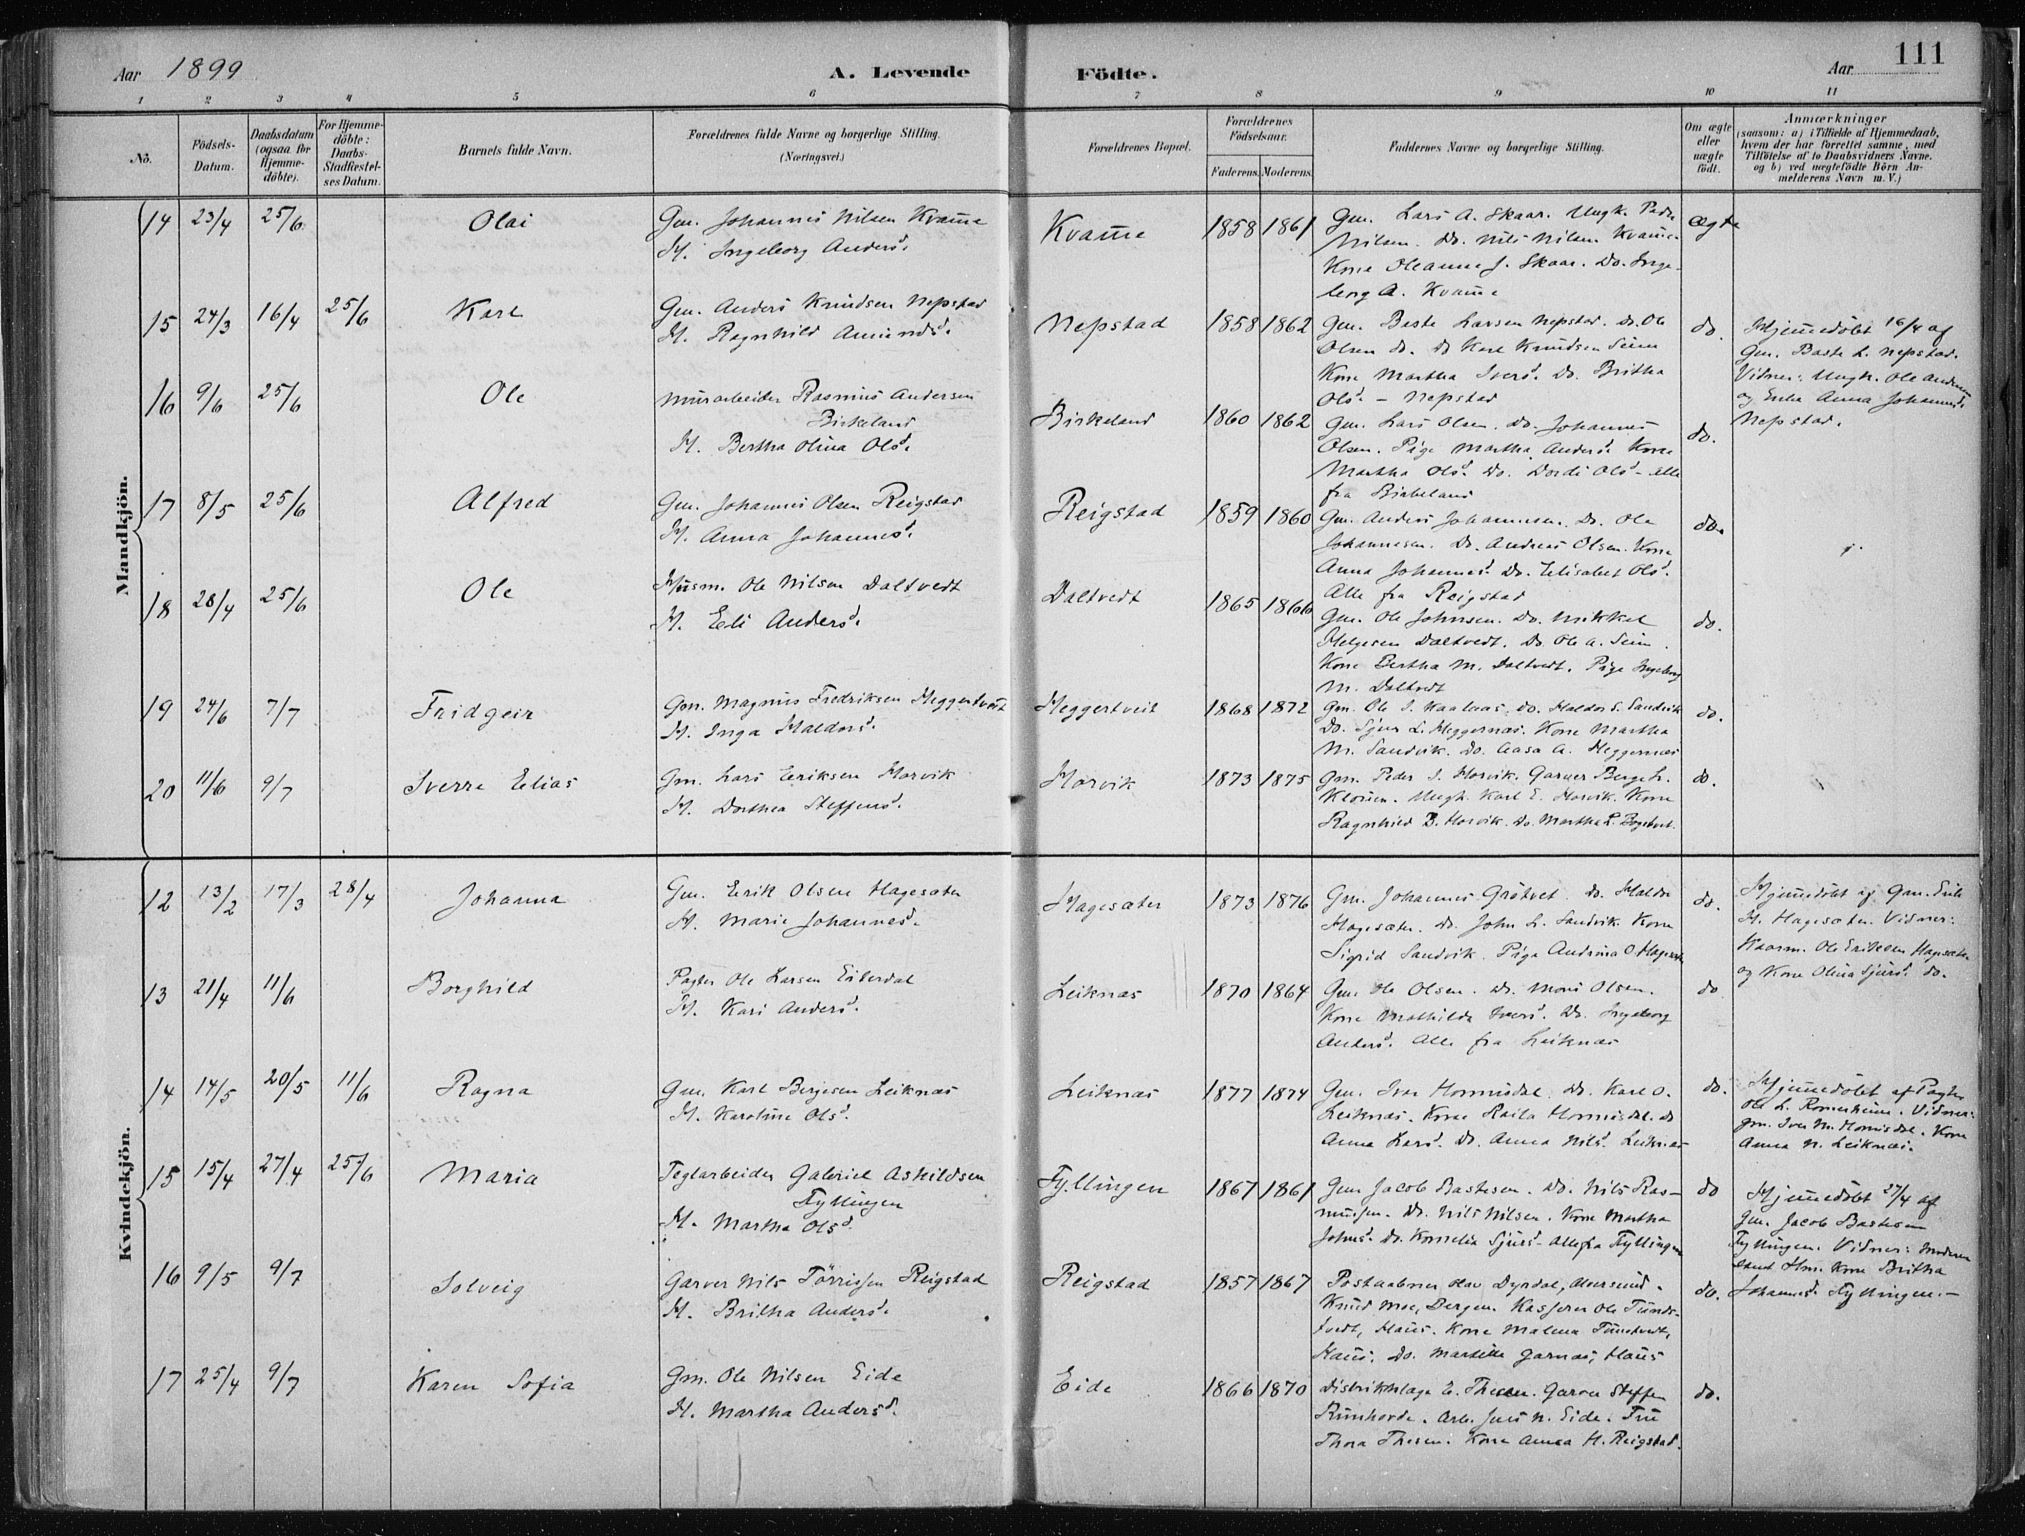 Aar 1899
A. Levende
Födte.
Aar
111
1 2 3 4 5 6 7 8 9 10 11
No.
Födsels-
Datum.
Daabsdatum
(ogsaa for
Hjemme-
döbte).
For Hjemme-
döbte:
Daabs-
Stadfæstel-
ses Datum.
Barnets fulde Navn.
Forældrenes fulde Navne og borgerlige Stilling.
(Næringsvei.)
Forældrenes Bopæl.
Forældrenes
Födselsaar.
Faderens. Moderens.
Faddernes Navne og borgerlige Stilling.
Om ægte
eller
uægte
födt.
Anmærkninger
(saasom: a) i Tilfælde af Hjemmedaab,
hvem der har forrettet samme, med
Tilföielse af to Daabsvidners Navne.
og b) ved uægtefödte Börn An-
melderens Navn m. V.)
Mandkjön.
14 23/4 25/6 Olai
Gm. Johannes Nilsen Kvamme
H. Ingeborg Andersd.
Kvamme 1858 1861
Gm. Lars A. Skaar. Ungk. Peder
Nilsen. Do. Nils Nilsen Kvamme.
Kone Oleanna J. Skaar. Do. Inge-
borg A. Kvamme
ægte
15 24/3 16/4 25/6 Karl
Gm. Anders Knudsen Nepstad
H. Ragnhild Amundsd.
Nepstad 1858 1862
Gm. Baste Larsen Nepstad. Do. Ole
Olsen do. Do Karl Knudsen Seim
Kone Martha Iversd. Do. Britha
Olsd. - Nepstad
do.
Hjemmedöbt 16/4 af
Gm. Baste L. Nepstad.
Vidner: Ungk. Ole Andersen
og Enke Anna Johannesd.
Nepstad.
16 9/6 25/6 Ole
Murarbeider Rasmus Andersen
Birkeland
H. Bertha Olina Olsd.
Birkeland 1860 1862
Gm. Lars Olsen. Do. Johannes
Olsen. Pige Martha Andersd. Kone
Martha Olsd. Do. Dordi Olsd - alle
fra Birkeland
do.
17 8/5 25/6 Alfred
Gm. Johannes Olsen Reigstad
H. Anna Johannesd.
Reigstad 1859 1860
Gm. Anders Johannesen. Do. Ole
Johannesen. Do. Andreas Olsen. Kone
Anna Johannesd. Do. Elisabet Olsd.
Alle fra Reigstad
do.
18 28/4 25/6 Ole
Husm. Ole Nilsen Daltvedt
H. Eli Andersd.
Daltvedt 1865 1866
Gm. Ole Johnsen. Do. Mikkel
Helgesen Daltvedt. Do Ole A. Seim.
Kone Bertha M. Daltvedt. Pige Ingeborg
M. Daltvedt
do.
19 24/6 7/7 Fridgeir
Gm. Magnus Fredriksen Heggertveit
H. Inga Haldorsd.
Heggertveit 1868 1872
Gm. Ole S. Kaalaas. Do. Haldor S. Sandvik
Do. Sjur L. Heggernæs. Kone Martha
M. Sandvik. Do. Aasa A. Heggernæs
do.
20 11/6 9/7 Sverre Elias
Gm. Lars Eriksen Horvik
H. Dorthea Steffensd.
Horvik 1873 1875
Gm. Peder S. Horvik. Garver Berge L.
. Ungk. Karl E. Horvik. Kone
Ragnhild B. Horvik. Do. Martha L.
do.
Kvindekjön.
12 13/2 17/3 28/4 Johanna
Gm. Erik Olsen Hagesæter
H. Marie Johannesd.
Hagesæter 1873 1876
Gm. Johannes Grötvet. Do. Haldor
Hagesæter. Do. John L. Sandvik. Kone
Sigrid Sandvik. Pige Andrina O. Hagesæter
do.
Hjemmedöbt af Gm. Erik
H. Hagesæter. Vidner:
Kaarm. Ole Eriksen Hagesæter
og Kone Olina Sjursd. do.
13 21/4 11/6 Borghild
Pagter Ole Larsen Eikerdal
H. Kari Andersd.
Leiknæs 1870 1864
Gm. Ole Olsen. Do. Mons Olsen.
Kone Mathilde Iversd. Do. Ingeborg
Andersd. Alle fra Leiknæs
do
14 14/5 20/5 11/6 Ragna
Gm. Karl Bergesen Leiknæs
H. Karoline Olsd.
Leiknæs 1877 1874
Gm. Ivar Hornisdal. Do. Karl O.
Leiknæs. Kone Raila Hornisdal. Do
Anna Larsd. Do. Anna Nilsd. Leiknæs
do.
Hjemmedöbt af Pagter
Ole L. Romerheim. Vidner:
Gm. Iver M. Hornisdal. Kone
Anna N. Leiknæs.
15 15/4 27/4 25/6 Maria
Teglarbeider Gabriel Askildsen
Fyllingen
H. Martha Olsd.
Fyllingen 1867 1861
Gm Jacob Bastesen. Do. Nils Ras-
mussen. Do. Nils Nilsen. Kone Martha
Johnsd. Do. Kornelia Sjursd - Alle fra Fyllingen
do
Hjemmedöbt 27/4 af
Gm. Jacob Bastesen
Fyllingen. Vidner: Moderen
samt Hm. Kone Britha
Johannesd. Fyllingen. -
16 9/5 9/7 Solveig
Garver Nils Törrissen Reigstad
H. Britha Andersd.
Reigstad 1857 1867
Postaabner Olav Dyrdal, Alversund.
Knud Moe, Bergen. Kasserer Ole Tunds-
tvedt, Haus. Kone Malena Tunstvedt,
Haus. Do. Martha Garnæs, Haus
do.
17 25/4 9/7 Karen Sofia
Gm. Ole Nilsen Eide
H. Martha Andersd.
Eide 1866 1870
Distriktslæge E. Thesen. Garver Steffen
Runhovde. Arb. Jens N. Eide. Frue
Thora Thesen. Kone Anna H. Reigstad.
do.